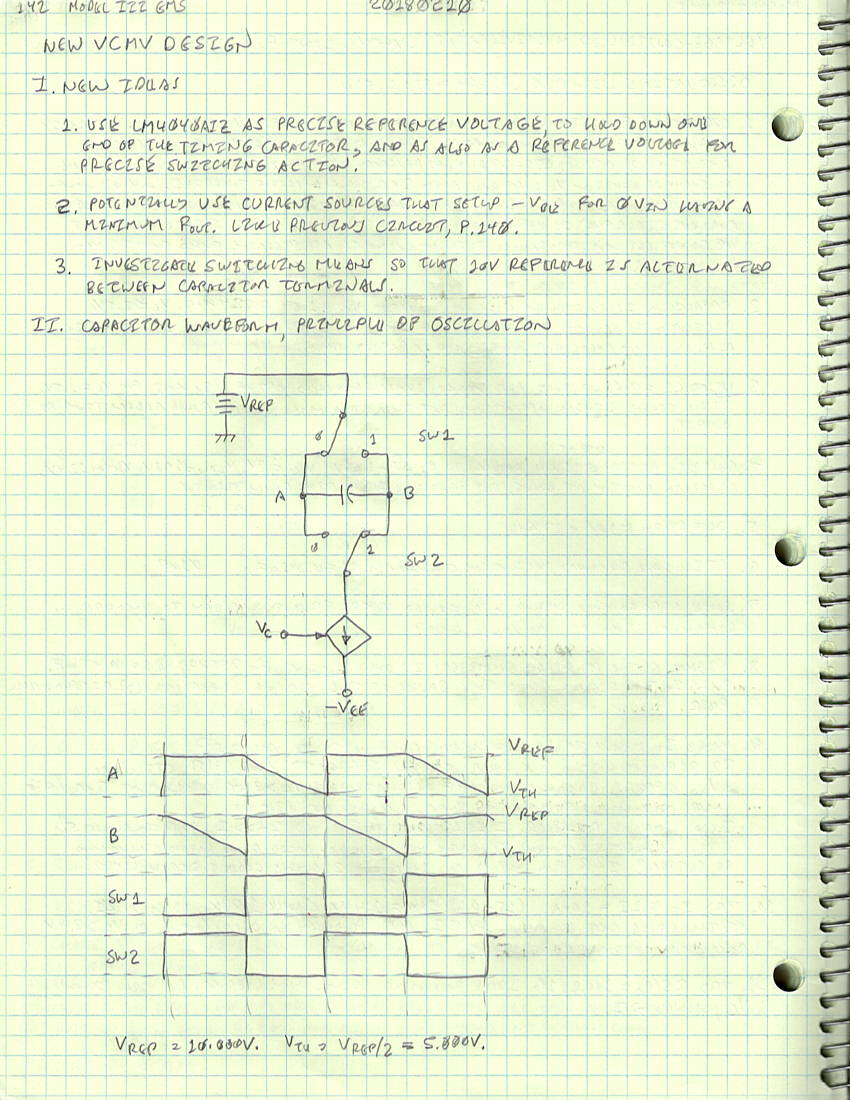 142 MODEL 122 EMS 20180210
NEW VCMV DESIGN
I. NEW IDEAS
1. USE LM4040AIZ AS PRECISE REFERENCE VOLTAGE, TO HOLD DOWN ONE
END OF THE TIMING CAPACITOR, AND AS ALSO AS A REFERENCE VOLTAGE FOR
PRECISE SWITCHING ACTION.
2. POTENTIALLY USE CURRENT SOURCES THAT SETUP -VEE FOR 0VIN HAVING A
MINIMUM FOUT. LIKE PREVIOUS CIRCUIT, P.140.
3. INVESTIGATE SWITCHING MEANS SO THAT 10V REFERENCE IS ALTERNATED
BETWEEN CAPACITOR TERMINALS.
II. CAPACITOR WAVEFORM, PRINCIPLE OF OSCILLATION
VREF
0 1 SW1
A B
0 1 SW2
VC
-VEE
A VREF
VTH
B VREF
VTH
SW1
SW2
VREF = 10.000V. VTH = VREF/2 = 5.000V.